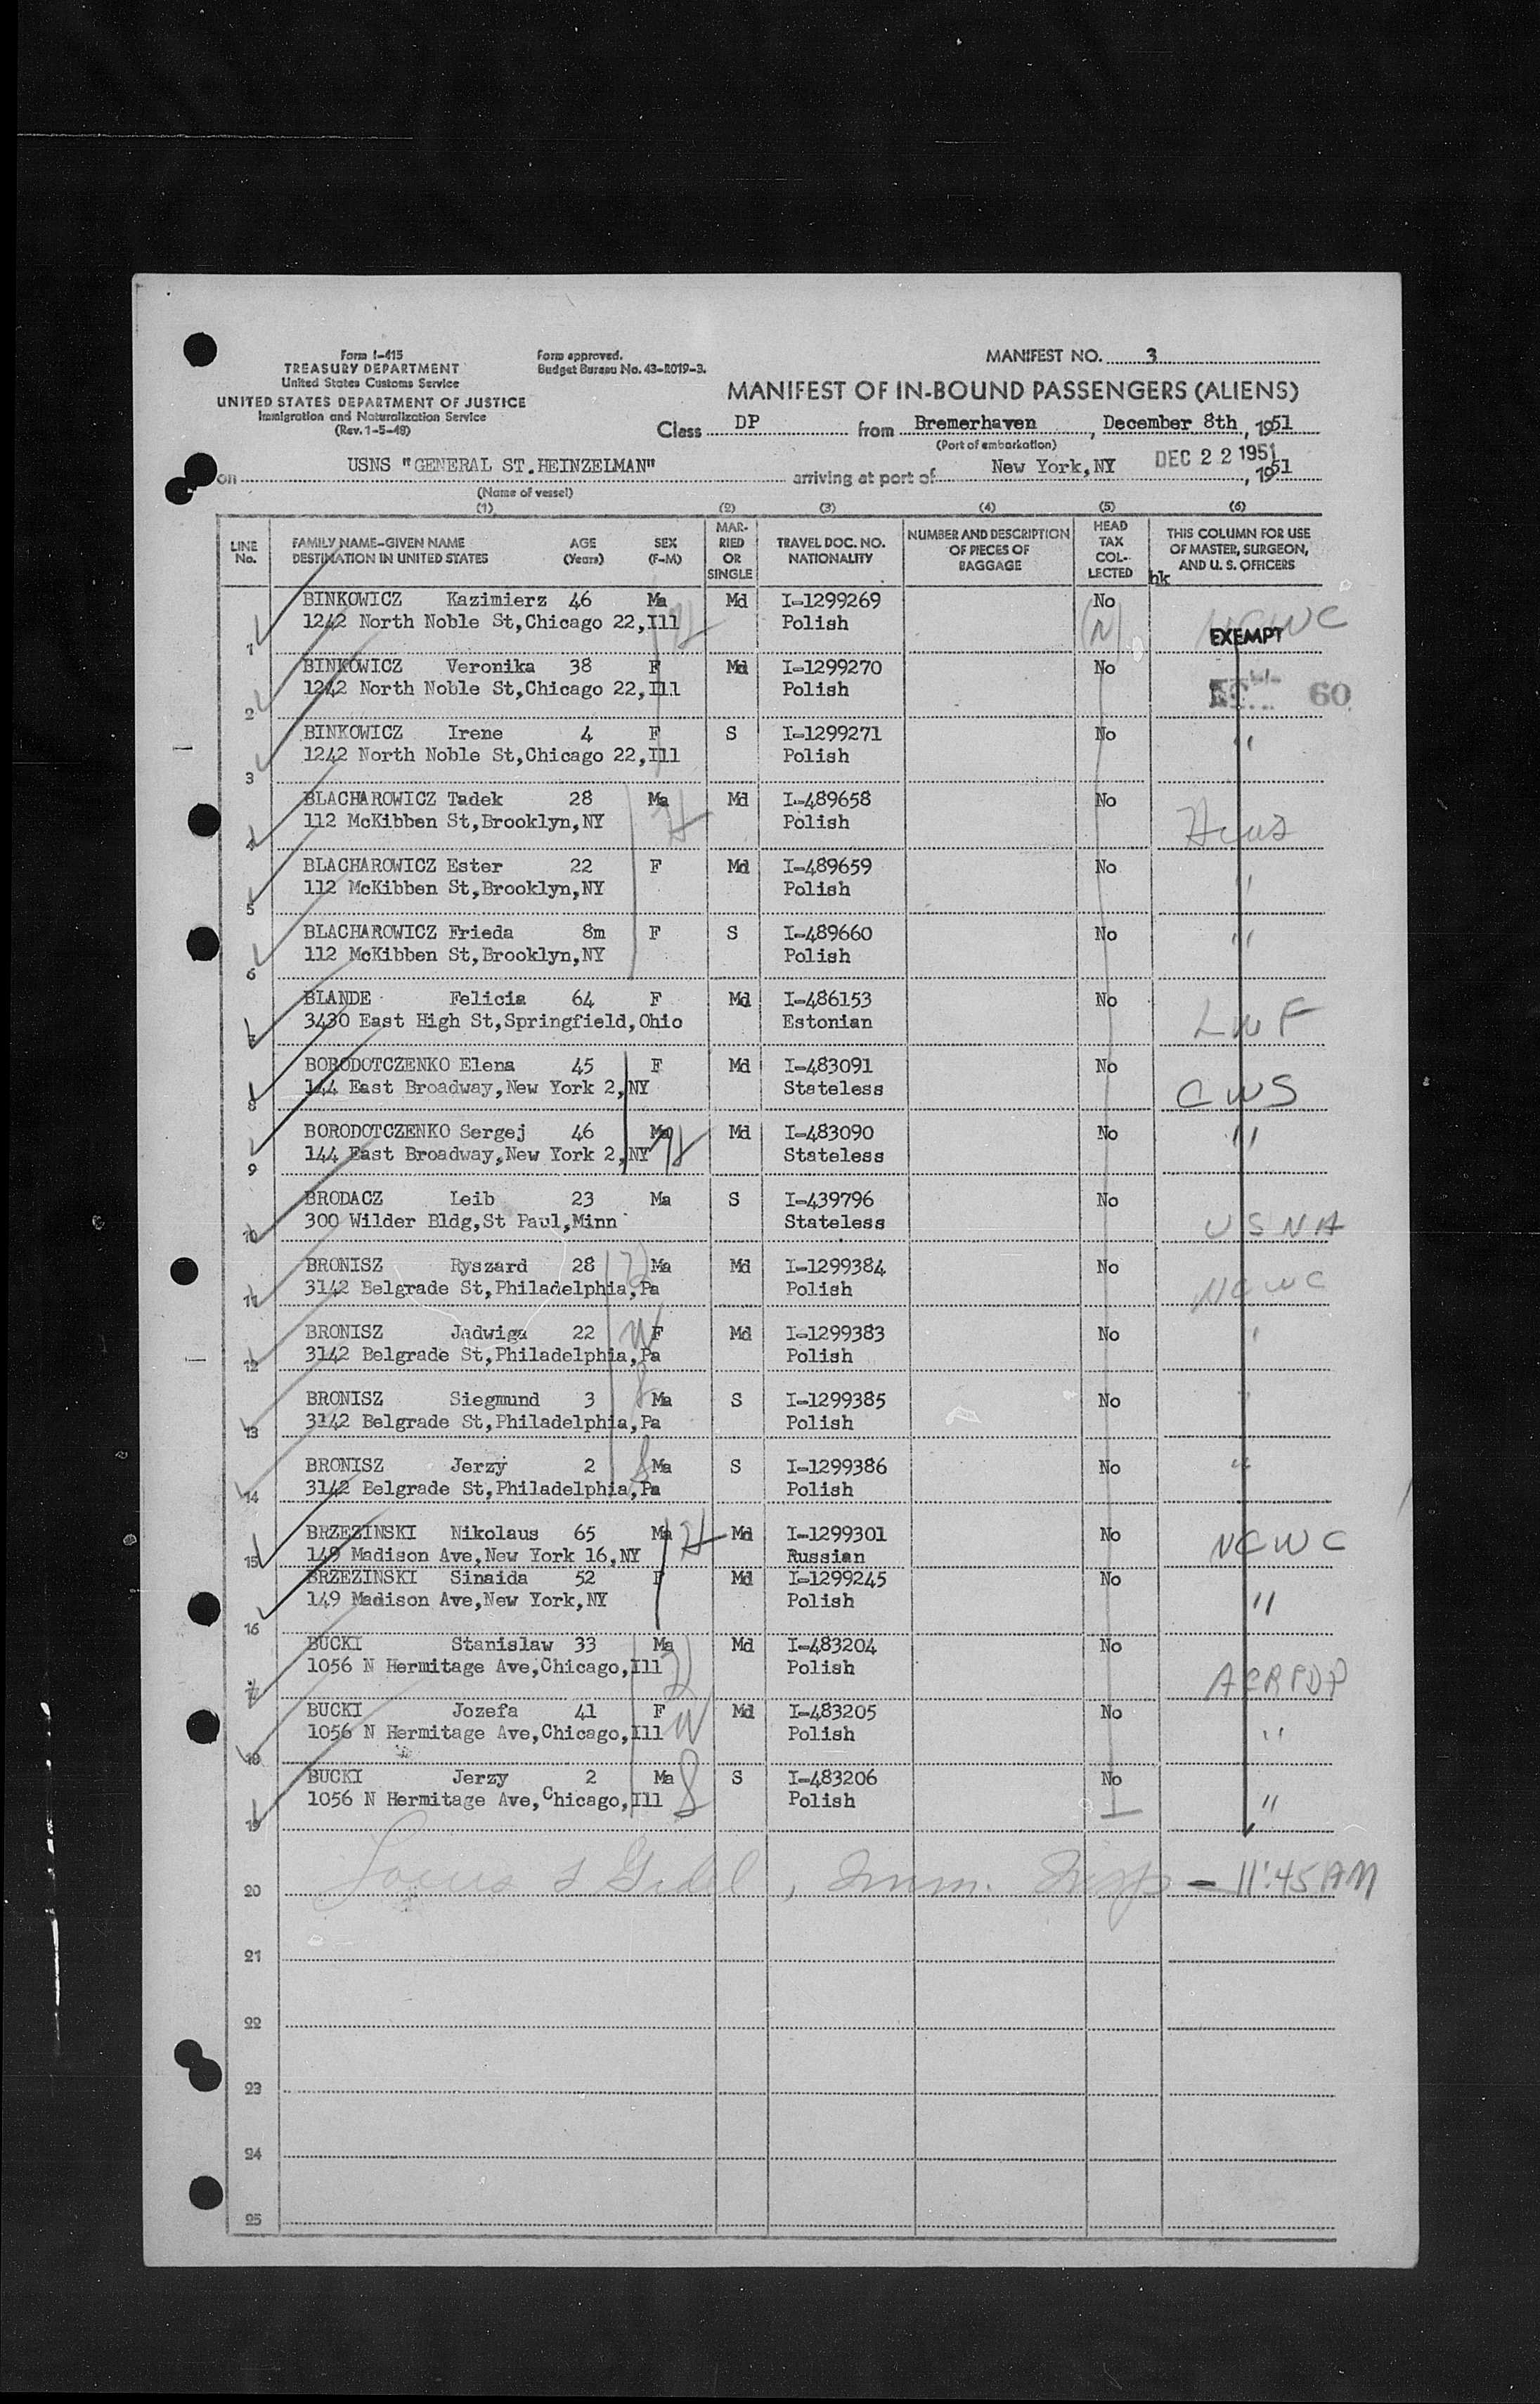 Form I-415
TREASURY DEPARTMENT
United States Customs Service
UNITED STATES DEPARTMENT OF JUSTICE
Immigration and Naturalization Service
(Rev. 1-5-49)
Form approved.
Budget Bureau No. 43-R019-3.
MANIFEST NO. 3
MANIFEST OF IN-BOUND PASSENGERS (ALIENS)
Class DP from Bremerhaven, December 8th, 1951
(Port of embarkation)
on USNS "GENERAL ST.HEINZELMAN" arriving at port of New York,NY DEC 22 1951, 1951
(Name of vessel)
(1) (2) (3) (4) (5) (6)
LINE No. FAMILY NAME–GIVEN NAME DESTINATION IN UNITED STATES AGE (Years) SEX (F-M) MARRIED OR SINGLE TRAVEL DOC. NO. NATIONALITY NUMBER AND DESCRIPTION OF PIECES OF BAGGAGE HEAD TAX COLLECTED THIS COLUMN FOR USE OF MASTER, SURGEON, AND U. S. OFFICERS
hk
BINKOWICZ Kazimierz 46 Ma Md I-1299269 No
1 1242 North Noble St,Chicago 22,Ill Polish (N) NCWC
EXEMPT
BINKOWICZ Veronika 38 F Md I-1299270 No
2 1242 North Noble St,Chicago 22,Ill Polish 60
BINKOWICZ Irene 4 F S I-1299271 No "
3 1242 North Noble St,Chicago 22,Ill Polish
BLACHAROWICZ Tadek 28 Ma Md I-489658 No
4 112 McKibben St,Brooklyn,NY Polish Hias
BLACHAROWICZ Ester 22 F Md I-489659 No
5 112 McKibben St,Brooklyn,NY Polish "
BLACHAROWICZ Frieda 8m F S I-489660 No "
6 112 McKibben St,Brooklyn,NY Polish
BLANDE Felicia 64 F Md I-486153 No
7 3430 East High St,Springfield,Ohio Estonian LWF
BORODOTCZENKO Elena 45 F Md I-483091 No
8 144 East Broadway,New York 2,NY Stateless CWS
BORODOTCZENKO Sergej 46 Ma Md I-483090 No "
9 144 East Broadway,New York 2,NY Stateless
BRODACZ Leib 23 Ma S I-439796 No
10 300 Wilder Bldg,St Paul,Minn Stateless USNA
BRONISZ Ryszard 28 Ma Md I-1299384 No
11 3142 Belgrade St,Philadelphia,Pa Polish NCWC
BRONISZ Jadwiga 22 W F Md I-1299383 No "
12 3142 Belgrade St,Philadelphia,Pa Polish
BRONISZ Siegmund 3 Ma S I-1299385 No "
13 3142 Belgrade St,Philadelphia,Pa Polish
BRONISZ Jerzy 2 Ma S I-1299386 No "
14 3142 Belgrade St,Philadelphia,Pa Polish
BRZEZINSKI Nikolaus 65 Ma H Md I-1299301 No NCWC
15 149 Madison Ave,New York 16,NY Russian
BRZEZINSKI Sinaida 52 F Md I-1299245 No
16 149 Madison Ave,New York,NY Polish "
BUCKI Stanislaw 33 Ma Md I-483204 No
17 1056 N Hermitage Ave,Chicago,Ill Polish ACRPDP
BUCKI Jozefa 41 F W Md I-483205 No
18 1056 N Hermitage Ave,Chicago,Ill Polish "
BUCKI Jerzy 2 Ma S I-483206 No
19 1056 N Hermitage Ave,Chicago,Ill Polish "
20 , Imm. Insp - 11:45 AM
21
22
23
24
25